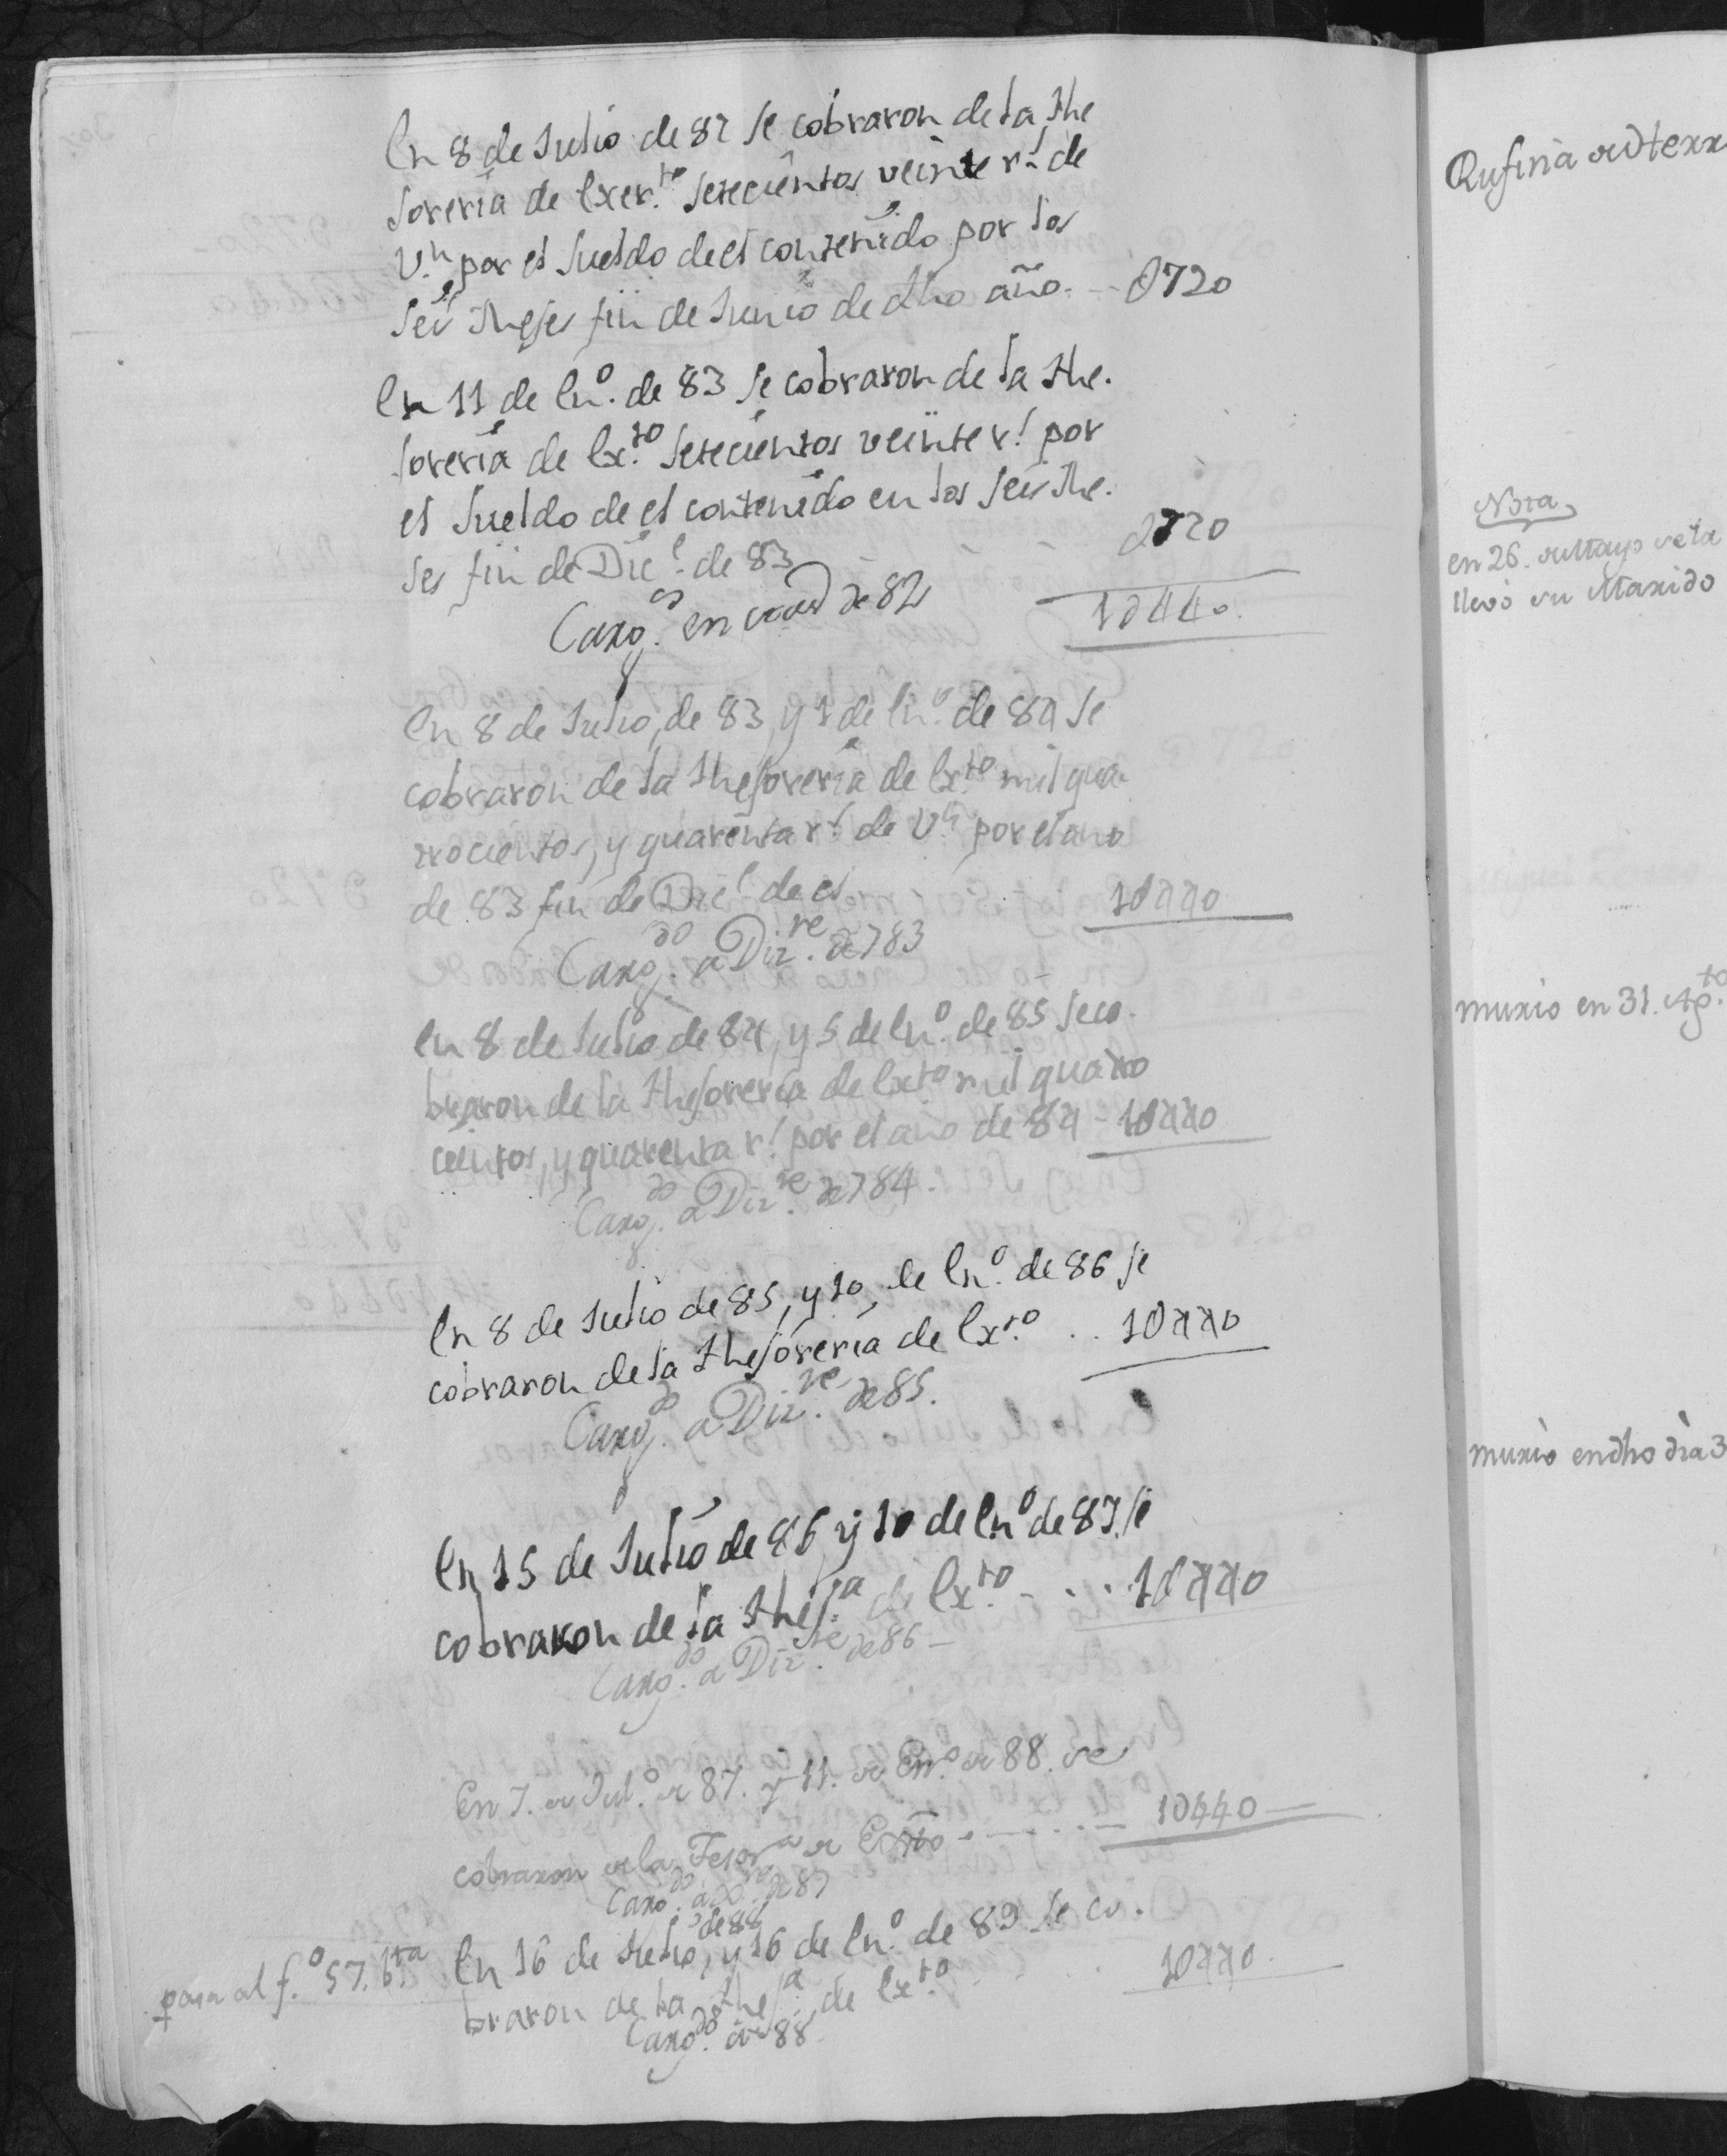 En 8 de Julio de 82 se cobraron de la the
soreria de Exer.to setecientos veinte r.s de
V.n por el sueldo de el contenido por los
seis meses fin de Junio de dho año. - 0720
En 11 de En.o de 83 se cobraron de la the.
soreria de Ex.to setecientos veinte r.s por
el sueldo de el contenido en los seis me.
ses fin de Dic.e de 83 0720
Carg.os en de 82 10440.
En 8 de Julio, de 83, y 1 de En.o de 84 se
cobraron de la thesoreria de Ex.to mil qua
trocientos, y quarenta r.s de V.n por el año
de 83 fin de Dic.e de el 10440
Carg.do a Diz.re de 783
En 8 de Julio de 84, y 5 de En.o de 85 se co.
braron de la thesoreria de Ex.to mil quatro
cientos, y quarenta r.s por el año de 84 - 10440
Carg.do a Diz.re de 784.
En 8 de Julio de 85, y 10, de En.o de 86 se
cobraron de la thesoreria de Ex.to . . 10440
Carg.do a Diz.re de 85.
En 15 de Julio de 86 y 10 de En.o de 87 se
cobraron de la thes.a de Ex.to - . . . 10440
Carg.do a Diz.re de 86 -
En 7. de Jul.o de 87. y 11. de En.o de 88. se
cobraron de la Tesor.a de Exto - - - . . - 10440
Carg.do a D.re de 87
de 88
En 16 de Julio, y 16 de En.o de 89 se co.
pasa al f.o 57. b.ta
braron de la thes.a de Ex.to 10440.
Carg.do de 88
Rufina de
Nota
en 26. de Mayo se la
llevó su Marido
murio en 31. Ag.to
murió en dho dia 3